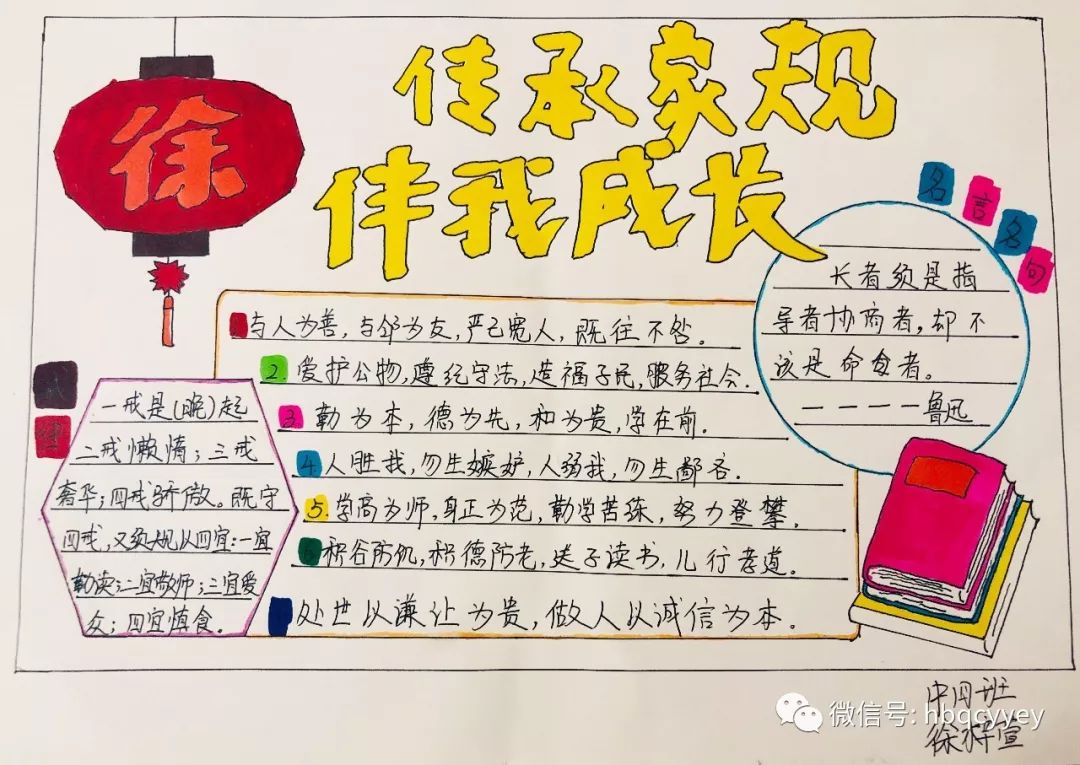 徐
传承家规
伴我成长
名言名句
长者须是指
导者协商者,却不
该是命令者。
————鲁迅
1.与人为善,与邻为友,严己宽人,既往不咎。
2.爱护公物,遵纪守法,造福子民,服务社会.
3.勤为本,德为先,和为贵,学在前.
4.人胜我,勿生嫉妒,人弱我,勿生鄙吝.
5.学高为师,身正为范,勤学苦练,努力登攀.
6.积谷防饥,积德防老,送子读书,儿行孝道.
处世以谦让为贵,做人以诚信为本.
一戒是(晚)起
二戒懒惰;三戒
奢华;四戒骄傲。既守
四戒,又须规以四宜:一宜
勤读;二宜敬师;三宜爱
众;四宜慎食.
中四班
徐梓宣
微信号: hbqcyyey